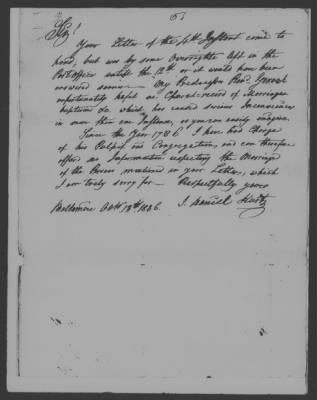 Sir!
Your Letter of the 4th Instant came to
hand, but was by some oversight left in the
Post office untill the 12th or it would have been
answered sooner. My Predecessor Revd. Gerock
unfortunately kept no Church-record of Marriages
baptisms &c. which has caused serious Inconveniences
in more than one Instance, as you can easily imagine.
Since the Year 1786 I have had charge
of his Pulpit and Congregation, and can therefore
offer no Information respecting the Marriage
of the Person mentioned in your Letter, which
I am truly sorry for. Respectfully yours
Baltimore Octr 13th 1846. J. Daniel Kurtz